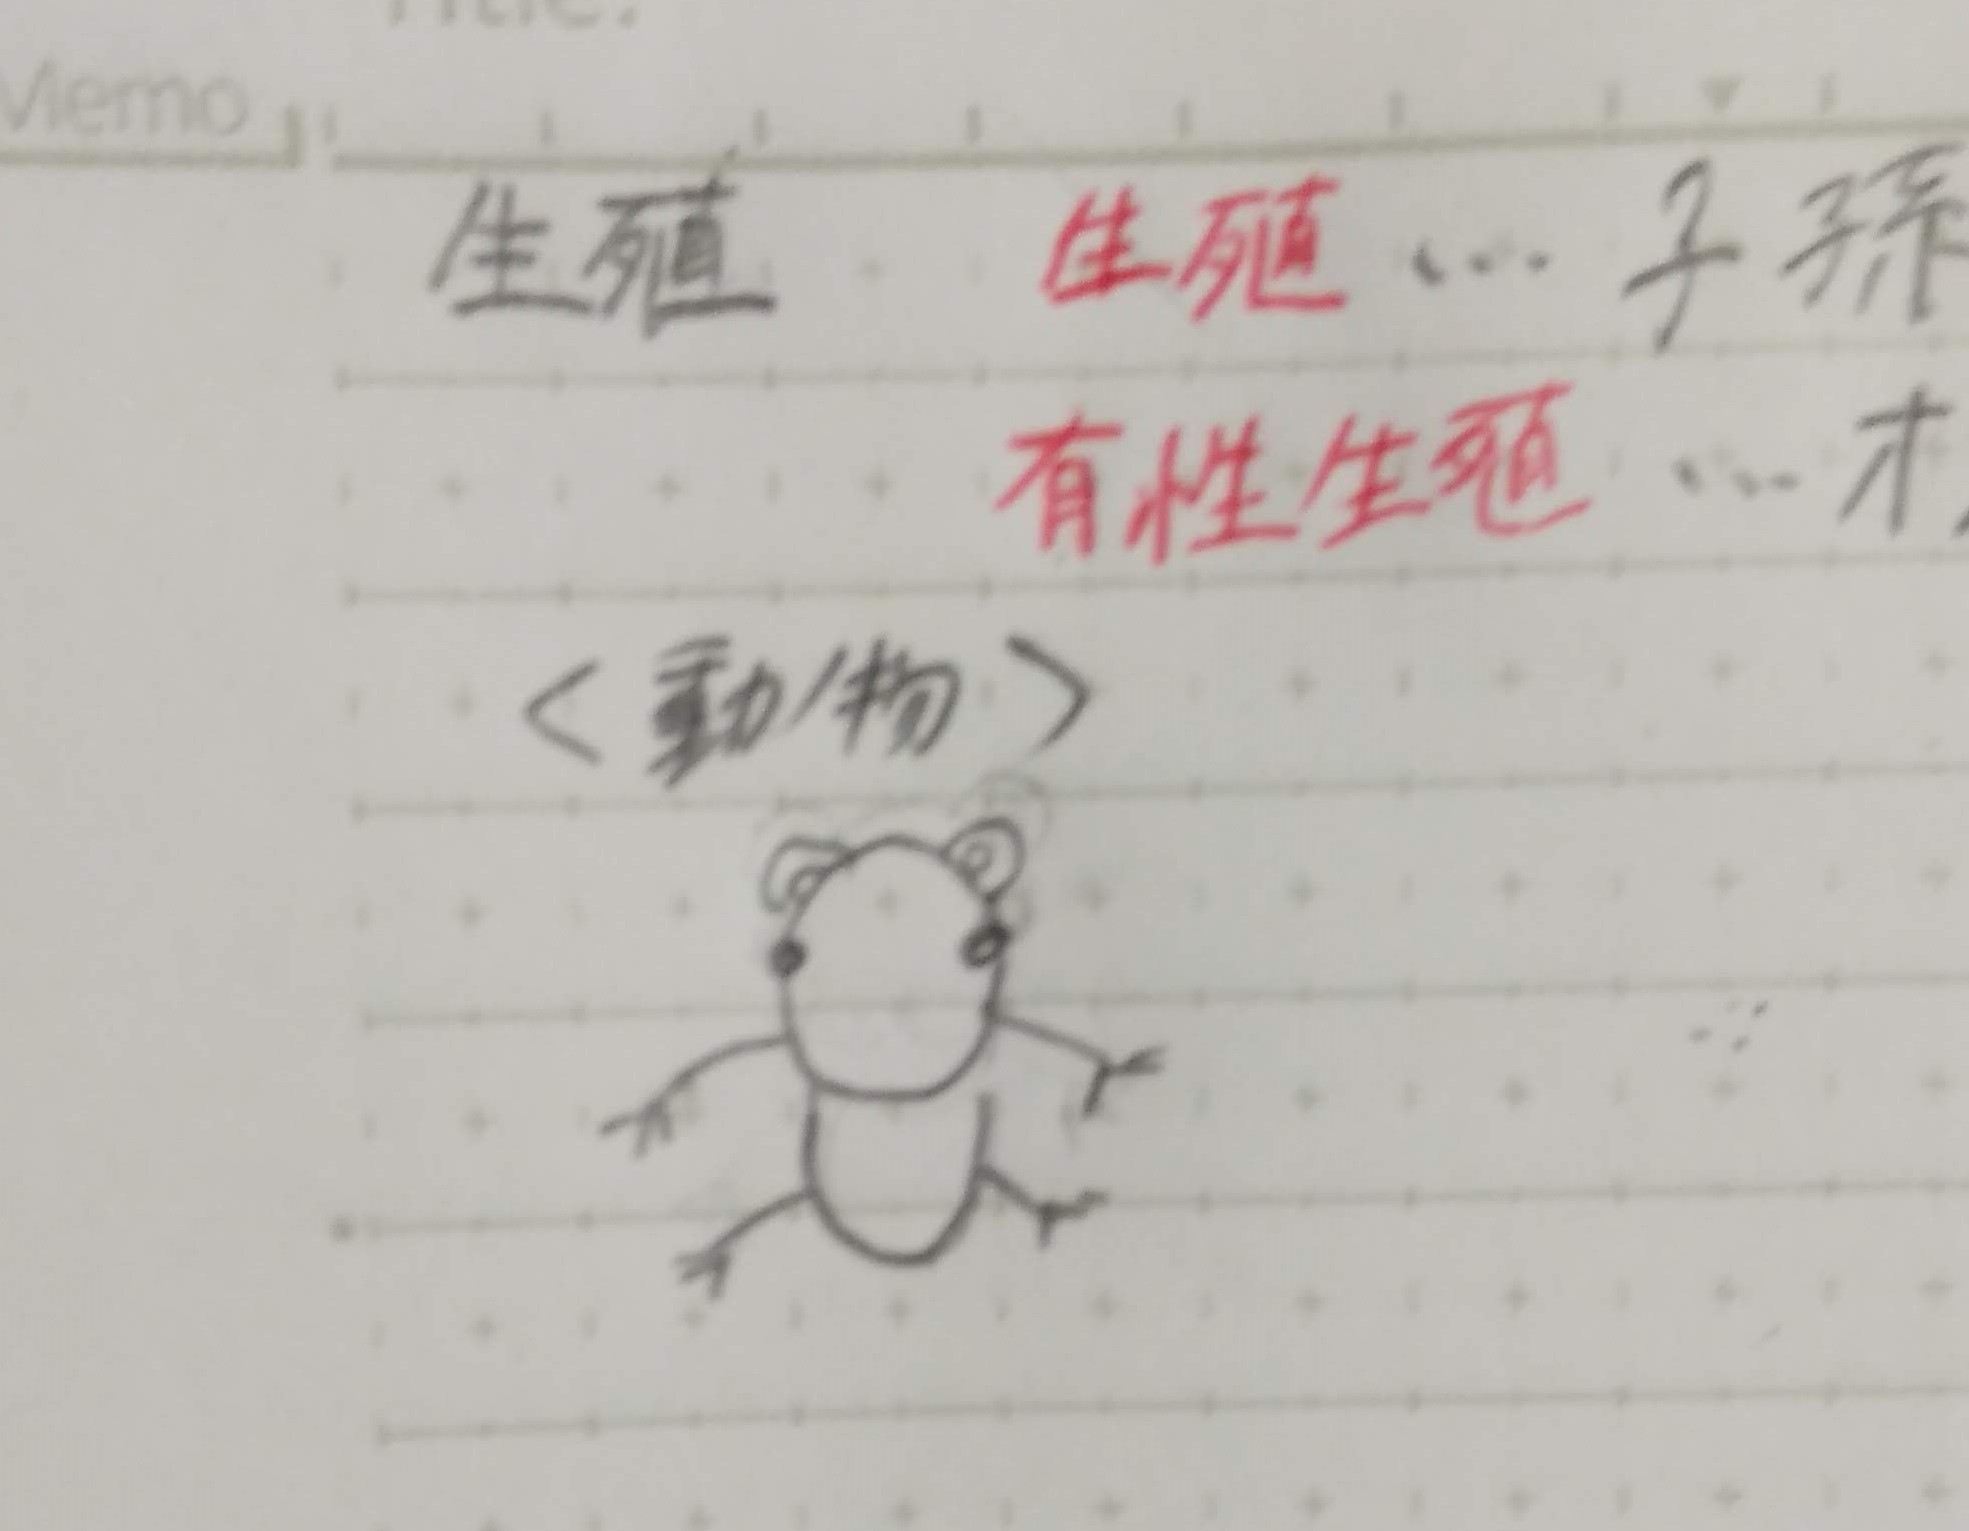 Title:
Memo
生殖 生殖 … 子孫
有性生殖 … オ
<動物>